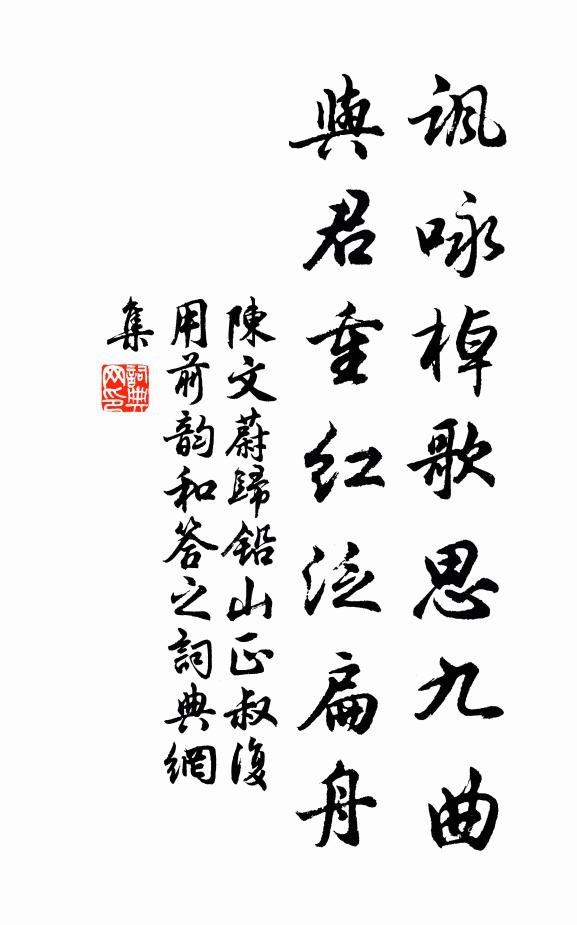 諷咏棹歌思九曲
與君重紅泛扁舟
陳文蔚歸鉛山正叔復
用前韵和答之詞典網
集
詞典
网印